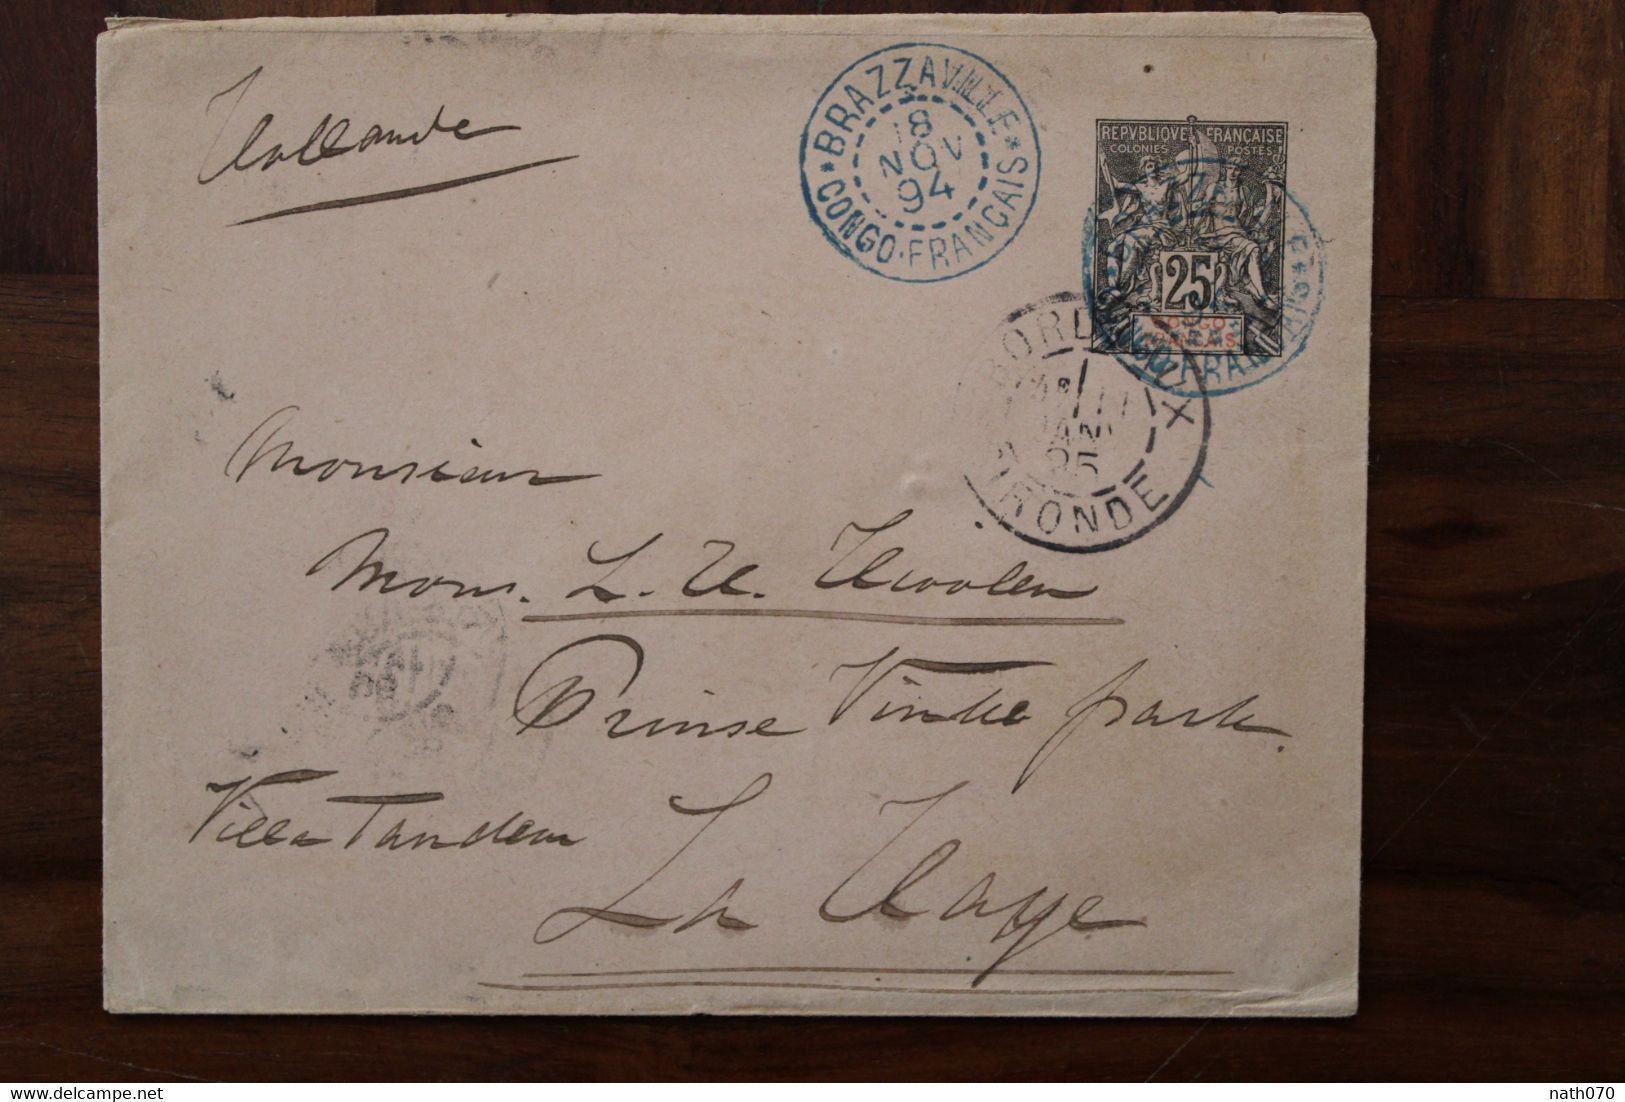 Hollande
BRAZZAVILLE
18
NOV
94
CONGO-FRANÇAIS
REPVBLIQVE FRANÇAISE
COLONIES POSTES
25
CONGO
FRANÇAIS
BORDEAUX
3E
11
JANV
95
GIRONDE
Monsieur
Mons. L. H. Hwoolen
Prinse Vinke park.
Villa Tandem
La Haye
delcampe.net
nath070